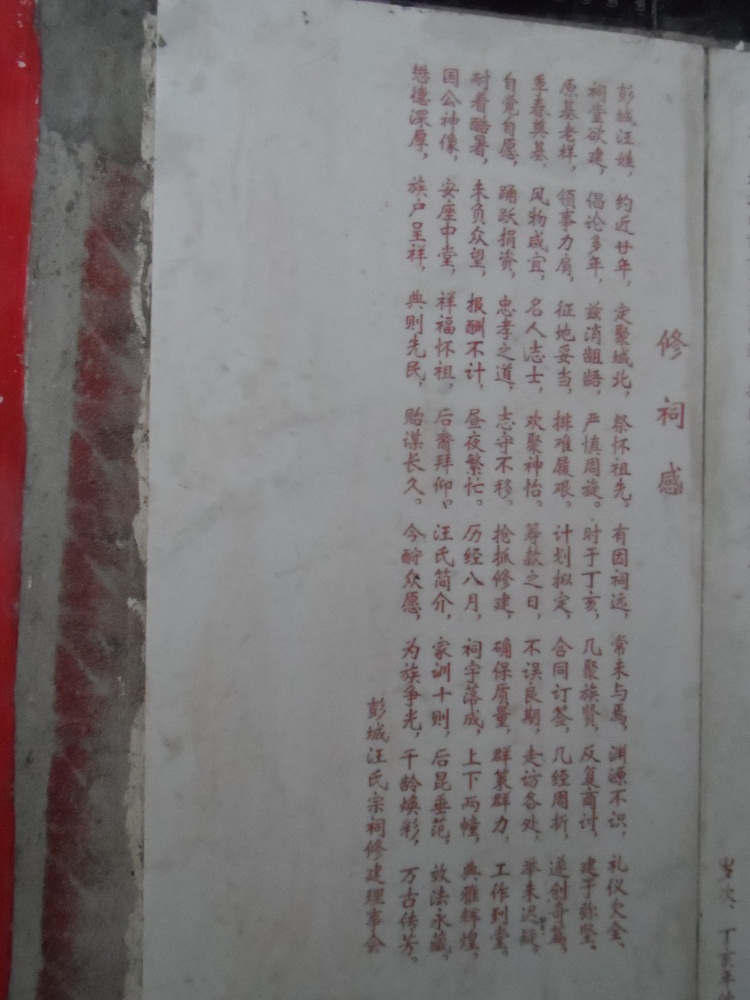 修祠感
彭城汪姓，约近廿年，定聚城北，祭怀祖先。有因祠远，常未与焉，渊源不识，礼仪欠全，
祠堂欲建，倡论多年，兹消龃龉，严慎周旋。时于丁亥，几聚族贤，反复商讨，建于弥坚，
原基老祥，领事力肩，征地妥当，排难履艰。计划拟定，合同订签，几经周折，遂创奇篇，
季春奠基，风物咸宜，名人志士，欢聚神怡。筹款之日，不误良期，走访各处，举未迟疑，
自觉自愿，踊跃捐资，忠孝之道，志守不移。抢抓修建，确保质量，群策群力，工作到堂，
耐着酷暑，未负众望，报酬不计，昼夜繁忙。历经八月，祠宇落成，上下两幢，典雅辉煌，
国公神像，安座中堂，祥福怀祖，后裔拜仰。汪氏简介，家训十则，后昆垂范，效法永藏，
懋德深厚，族户呈祥，典则先民，贻谋长久。今酬众愿，为族争光，千龄焕彩，万古传芳。
彭城汪氏宗祠修建理事会
岁次、丁亥年